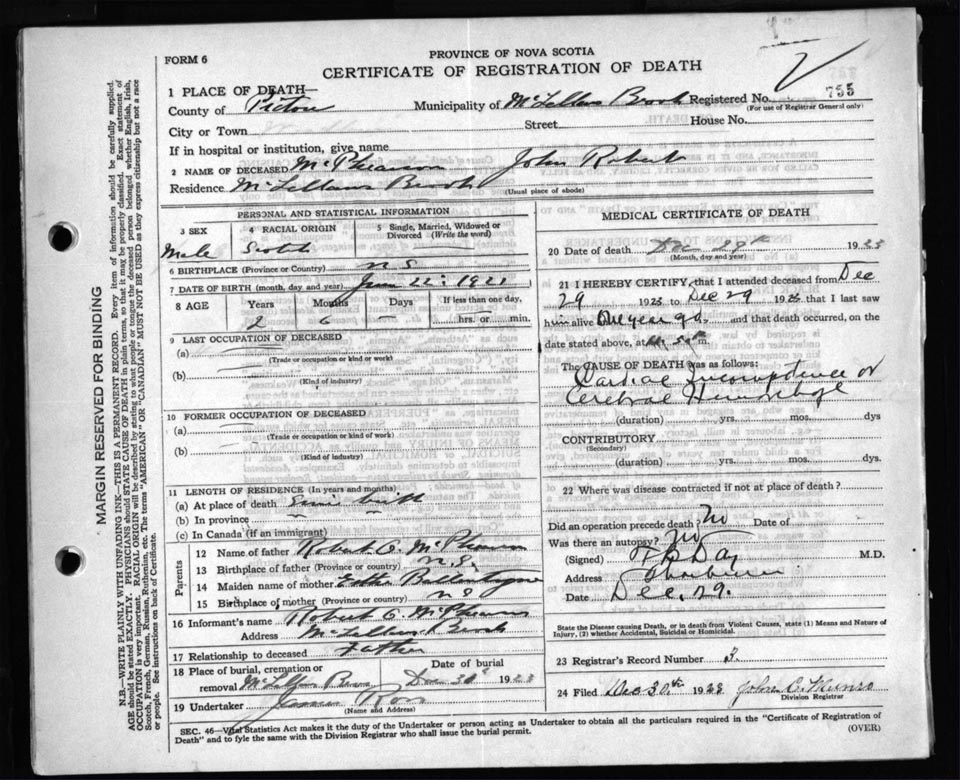 FORM 6
PROVINCE OF NOVA SCOTIA
CERTIFICATE OF REGISTRATION OF DEATH
1 PLACE OF DEATH—
County of Pictou Municipality of McLellans Brook Registered No. 795
(For use of Registrar General only)
City or Town Street House No.
If in hospital or institution, give name
2 NAME OF DECEASED McPhearson John Robert
Residence McLellans Brook (Usual place of abode)
PERSONAL AND STATISTICAL INFORMATION
3 SEX 4 RACIAL ORIGIN 5 Single, Married, Widowed or Divorced (Write the word)
Male Scotch
6 BIRTHPLACE (Province or Country) N S
7 DATE OF BIRTH (month, day and year) June 22: 1921
8 AGE Years Months Days If less than one day,
2 6 — hrs. or min.
9 LAST OCCUPATION OF DECEASED
(a)
(Trade or occupation or kind of work)
(b)
(Kind of industry)
10 FORMER OCCUPATION OF DECEASED
(a)
(Trade or occupation or kind of work)
(b)
(Kind of industry)
11 LENGTH OF RESIDENCE (In years and months)
(a) At place of death Since birth
(b) In province
(c) In Canada (if an immigrant)
Parents
12 Name of father Robert G. McPhearson
13 Birthplace of father (Province or country) N.S.
14 Maiden name of mother Ballantyne
15 Birthplace of mother (Province or country) N S
16 Informant's name Robert G. McPhearson
Address McLellans Brook
17 Relationship to deceased Father
18 Place of burial, cremation or Date of burial
removal McLellans Brook Dec 30th 1923
19 Undertaker James
(Name and Address)
MEDICAL CERTIFICATE OF DEATH
20 Date of death Dec 29th 1923
(Month, day and year)
21 I HEREBY CERTIFY, that I attended deceased from Dec
29 1923 to Dec 29 1923 that I last saw
him alive One year ago and that death occurred, on the
date stated above, at m.
The CAUSE OF DEATH was as follows:
Cardiac Incompetence or
Cerebral Hemorrhage
(duration) yrs. mos. dys
CONTRIBUTORY
(Secondary)
(duration) yrs. mos. dys
22 Where was disease contracted if not at place of death?
Did an operation precede death? No Date of
Was there an autopsy? No
(Signed) Day M.D.
Address Thorburn
Date Dec. 29.
State the Disease causing Death, or in death from Violent Causes, state (1) Means and Nature of
Injury, (2) whether Accidental, Suicidal or Homicidal.
23 Registrar's Record Number
24 Filed Dec 30th 1923 John C. Munro
Division Registrar
SEC. 46—Vital Statistics Act makes it the duty of the Undertaker or person acting as Undertaker to obtain all the particulars required in the "Certificate of Registration of
Death" and to fyle the same with the Division Registrar who shall issue the burial permit.
(OVER)
MARGIN RESERVED FOR BINDING
N.B.—WRITE PLAINLY WITH UNFADING INK—THIS IS A PERMANENT RECORD. Every item of information should be carefully supplied.
AGE should be stated EXACTLY. PHYSICIANS should STATE CAUSE OF DEATH in plain terms, so that it may be properly classified. Exact statement of
OCCUPATION is very important. RACIAL ORIGIN will be described by stating to what people or tongue the deceased person belonged whether English, Irish,
Scotch, French, German, Russian, Ruthenian, etc. The terms "AMERICAN" or "CANADIAN" MUST NOT BE USED as they express citizenship but not a race
or people. See instructions on back of Certificate.